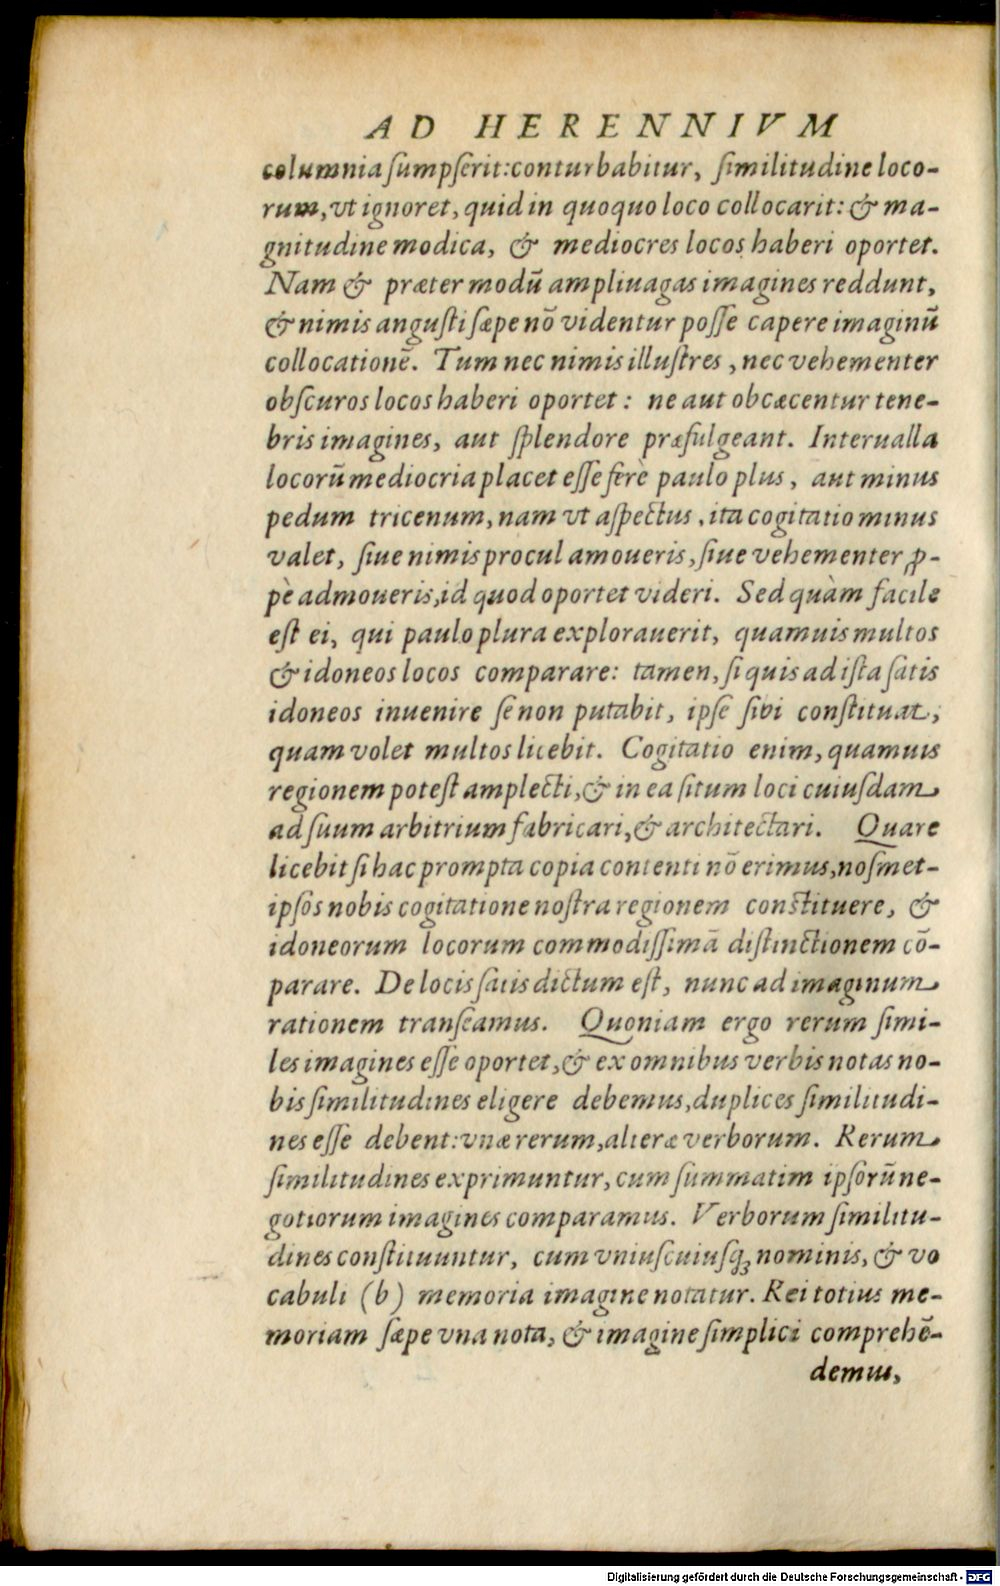 AD HERENNIVM
columnia ſumpſerit: conturbabitur, ſimilitudine loco-
rum, vt ignoret, quid in quoquo loco collocarit: & ma-
gnitudine modica, & mediocres locos haberi oportet.
Nam & præter modū ampli vagas imagines reddunt,
& nimis anguſti ſæpe nō videntur poſſe capere imaginū
collocationē. Tum nec nimis illuſtres, nec vehementer
obſcuros locos haberi oportet: ne aut obcæcentur tene-
bris imagines, aut ſplendore præfulgeant. Interualla
locorū mediocria placet eſſe ferè paulo plus, aut minus
pedum tricenum, nam vt aſpectus, ita cogitatio minus
valet, ſiue nimis procul amoueris, ſiue vehementer ꝓ-
pè admoueris, id quod oportet videri. Sed quàm facile
eſt ei, qui paulo plura explorauerit, quamuis multos
& idoneos locos comparare: tamen, ſi quis ad iſta ſatis
idoneos inuenire ſe non putabit, ipſe ſibi conſtituat,
quam volet multos licebit. Cogitatio enim, quamuis
regionem poteſt amplecti, & in ea ſitum loci cuiuſdam
ad ſuum arbitrium fabricari, & architectari. Quare
licebit ſi hac prompta copia contenti nō erimus, noſmet-
ipſos nobis cogitatione noſtra regionem conſtituere, &
idoneorum locorum commodiſſimā diſtinctionem cō-
parare. De locis ſatis dictum eſt, nunc ad imaginum
rationem tranſeamus. Quoniam ergo rerum ſimi-
les imagines eſſe oportet, & ex omnibus verbis notas no-
bis ſimilitudines eligere debemus, duplices ſimilitudi-
nes eſſe debent: vnæ rerum, alteræ verborum. Rerum
ſimilitudines exprimuntur, cum ſummatim ipſorū ne-
gotiorum imagines comparamus. Verborum ſimilitu-
dines conſtituuntur, cum vniuſcuiuſq; nominis, & vo
cabuli (b) memoria imagine notatur. Rei totius me-
moriam ſæpe vna nota, & imagine ſimplici comprehē-
demus,
Digitalisierung gefördert durch die Deutsche Forschungsgemeinschaft - DFG